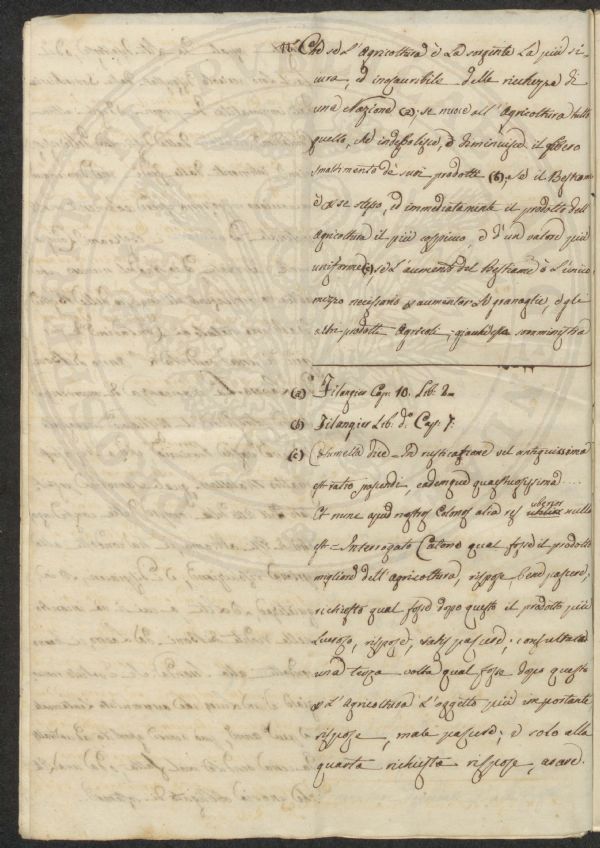 11.° Che se l'Agricoltura è la sorgente la più si-
cura, ed inesauribile delle ricchezze di
una Nazione (a); se nuoce all'Agricoltura tutto
quello, che indebolisce, e diminuisce il libero
smaltimento de suoi prodotti (b); se il Bestiame
è per se stesso, ed immediatamente il prodotto dell'
Agricoltura il più copioso, e d'un valore più
uniforme (c); se l'aumento del Bestiame è l'unico
mezzo necessario per aumentar le granaglie, e gli
altri prodotti Agricoli, somministra
(a) Filangier Cap. 10. Lib. 2.
(b) Filangier Lib. d.° Cap. 7.
(c) Columella dice = In rusticatione vel antiquissima
est ratio pascendi, eademque quaestuosissima....
Et nunc apud nostros Colonos alia res uberior nulla
est = Interrogato Catone qual fosse il prodotto
migliore dell'agricoltura, rispose, bene pascere;
richiesto qual fosse dopo questo il prodotto più
Lucroso, rispose, satis pascere; consultato
una terza volta qual fosse dopo questo
per l'Agricoltura l'oggetto più importante
rispose, male pascere; e solo alla
quarta richiesta rispose, arare.